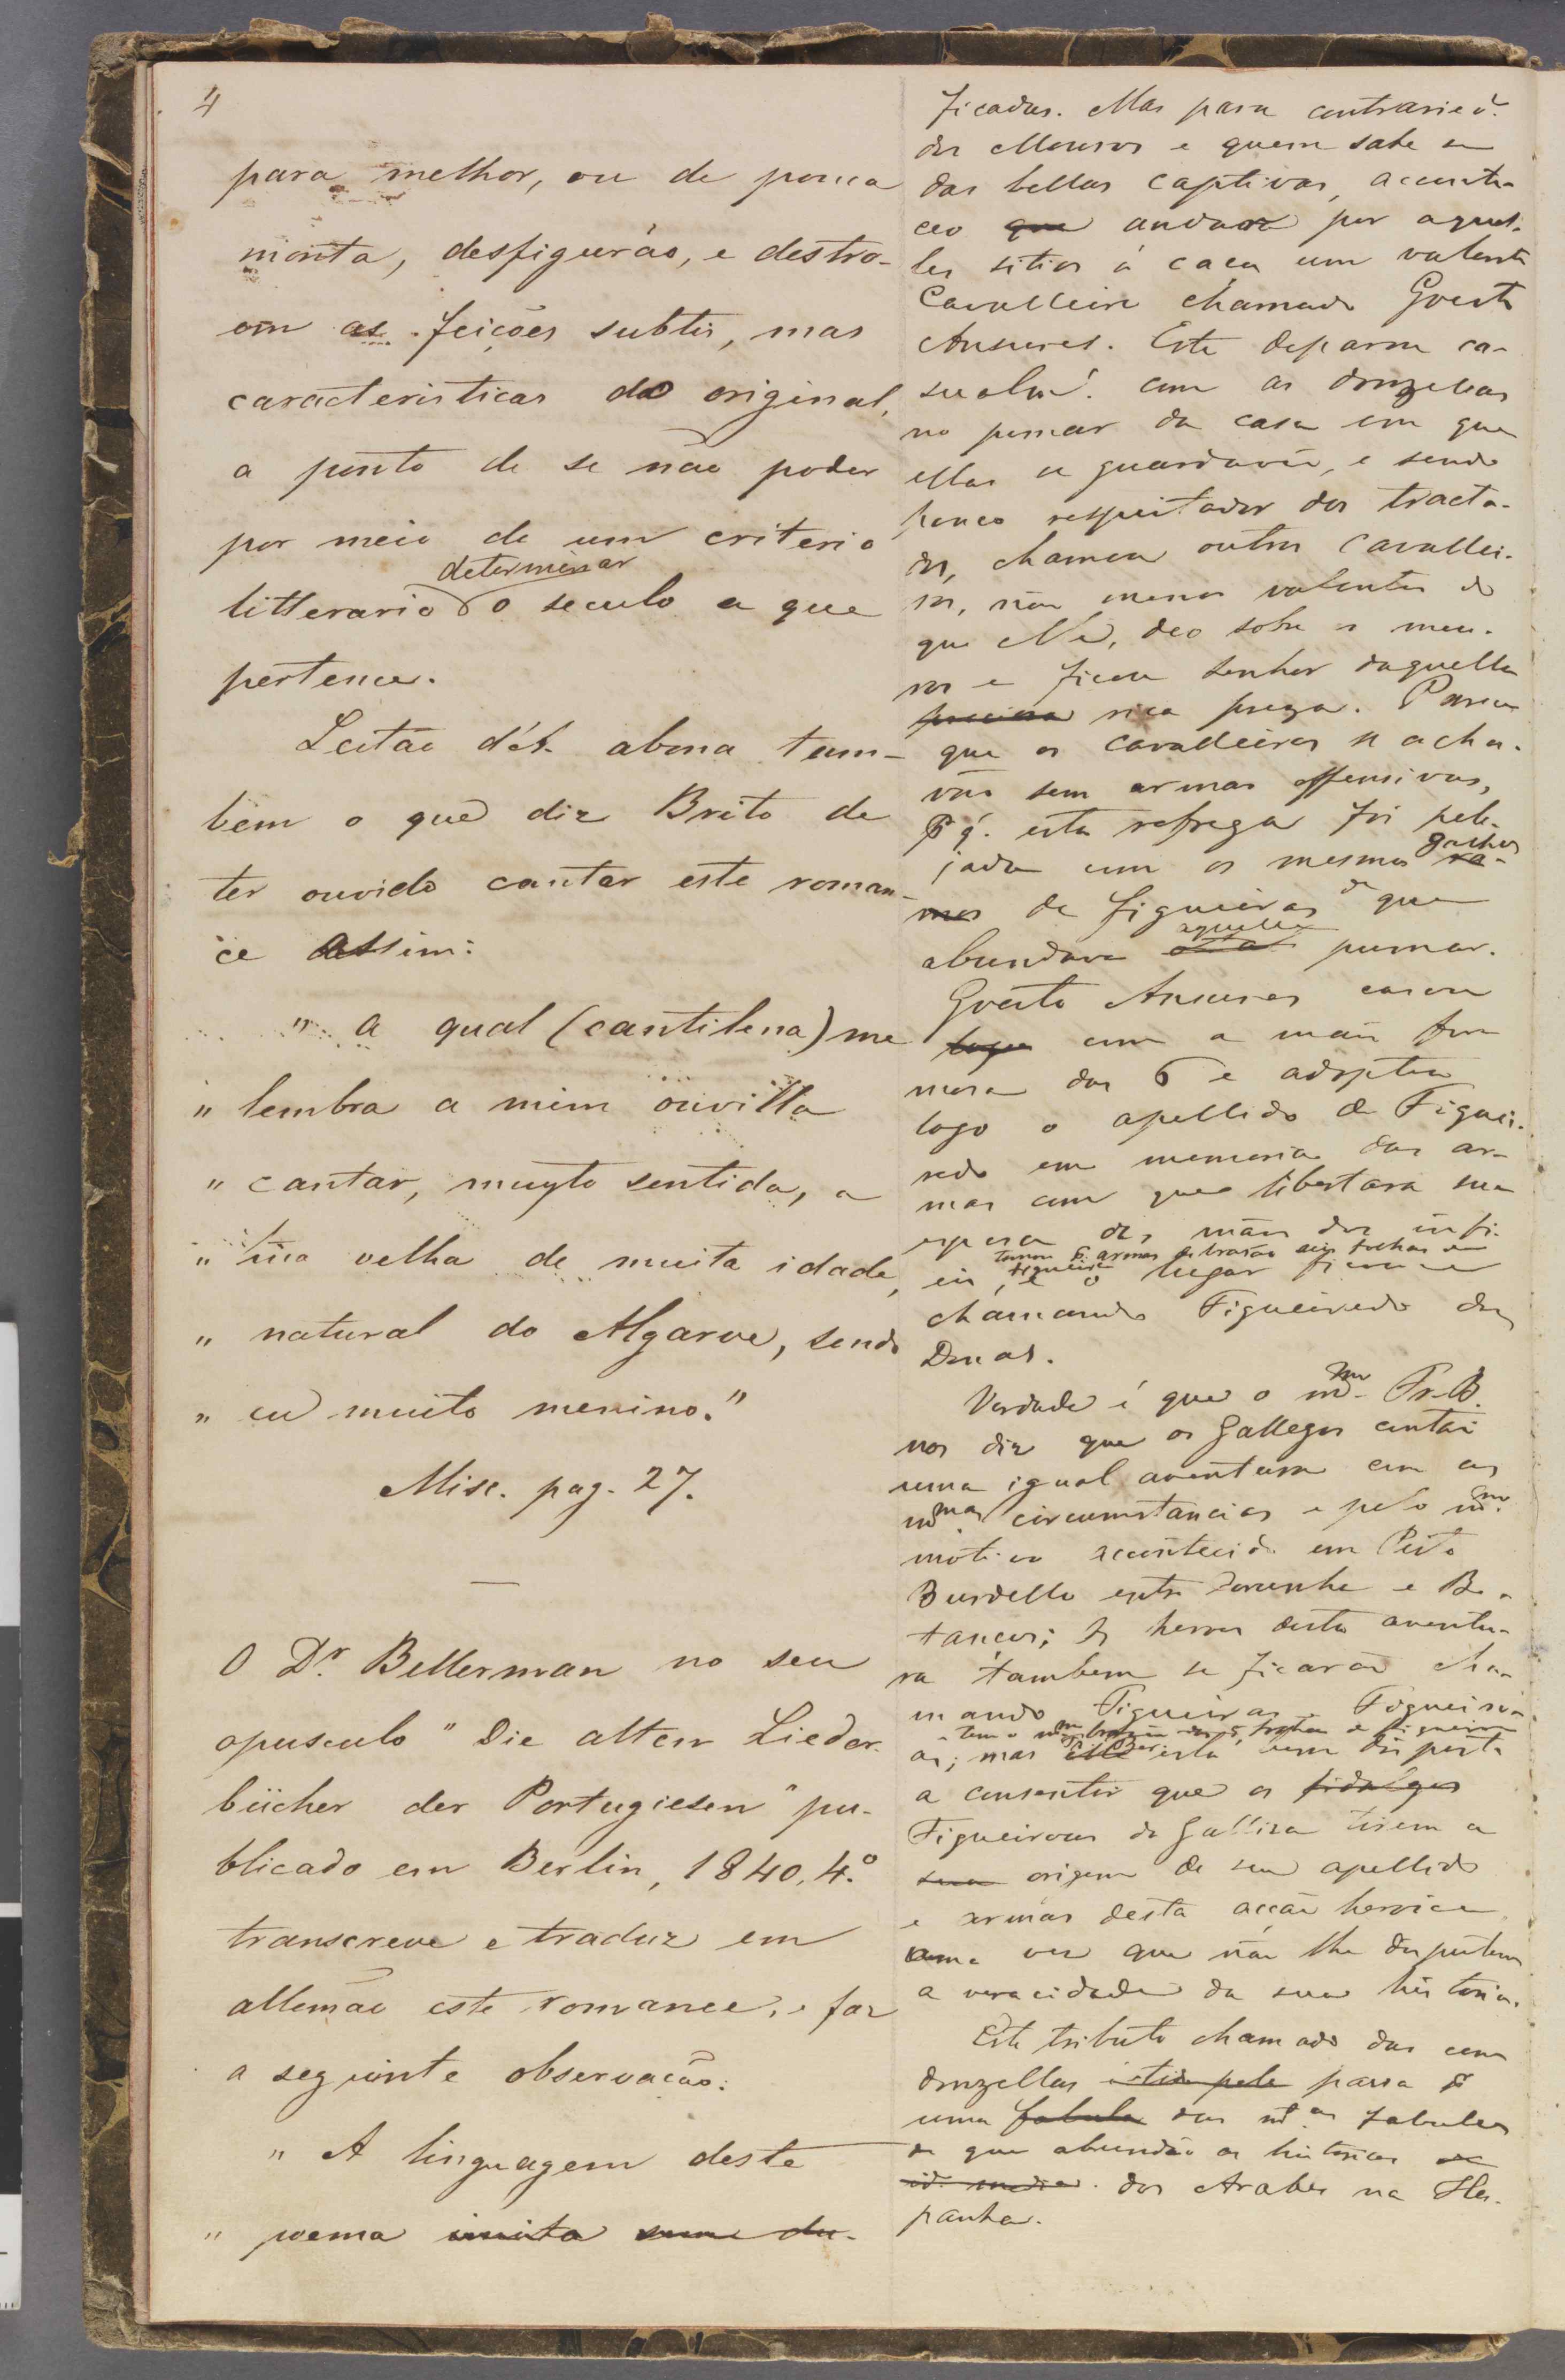 4
para melhor, ou de pouca
monta, desfigurão, e destro-
em as feições subtis, mas
caracteristicas do original,
a ponto de se não poder
por meio de um criterio
determinar
litterario o seculo a que
pertence.
Leitão d'A. abona tam-
bem o que diz Brito de
ter ouvido cantar este roman-
ce assim:
" a qual (cantilena) me
" lembra a mim ouvilla
" cantar, muyto sentida, a
" ũa velha de muita idade,
" natural do Algarve, sendo
" eu muito menino."
Misc. pag. 27.
O Dr. Bellerman no seu
opusculo "Die alten Lieder-
bücher der Portugiesen" pu-
blicado em Berlin, 1840, 4.º
transcreve e traduz em
allemão este romance, e faz
a seguinte observação:
" A linguagem deste
" poema imita uma du-
ficadas. Mas para contraried.
dos Mouros e quem sabe se
das bellas captivas, aconte-
ceo que andava por aquel-
les sitios á caça um valente
Cavalleiro chamado Goesto
Ansures. Este depara ca-
sualm. com as donzellas
no pomar da casa em que
ellas se guardavão, e sendo
pouco respeitador dos tracta-
dos, chamou outros cavallei-
ros, não menos valentes do
que elle, deo sobre os mou-
ros e ficou senhor daquella
rica preza. Parece
que os cavalleiros se acha-
vão sem armas offensivas,
pq. esta refrega foi pele-
galhos
jada com os mesmos ra-
mos de figueiras de que
aquelle
abundava pomar.
Goesto Ansures casou
logo com a mais for-
mosa das 6 e adoptou
logo o apellido de Figuei-
redo em memoria das ar-
mas com que libertara sua
esposa das mãos dos infi-
tomou p. armas de brasão seis folhas de
figueira
eis, e o lugar ficou se
chamando Figueiredo das
Donas.
Verdade é que o mmo Fr. B.
nos diz que os Gallegos contão
uma igual aventura com as
mmas circumstancias e pelo mmo
motivo acontecida em Peito
Burdello entre Corunha e Be-
tanços; os heroes desta aventu-
ra tambem se ficarão cha-
mando Figueiras Figueirô-
as; mas Fr. Ber. está bem disposto
a consentir que os fidalgos
Figueiroas de Galliza tirem a
sua origem de seu apellido
e armas desta acção heroica
uma vez que não lhe disputem
a veracidade da sua historia.
Este tributo chamado das cem
donzellas passa p
uma fabula das mtas fabulas
de que abundão as historias
dos Arabes na Hes-
panha.